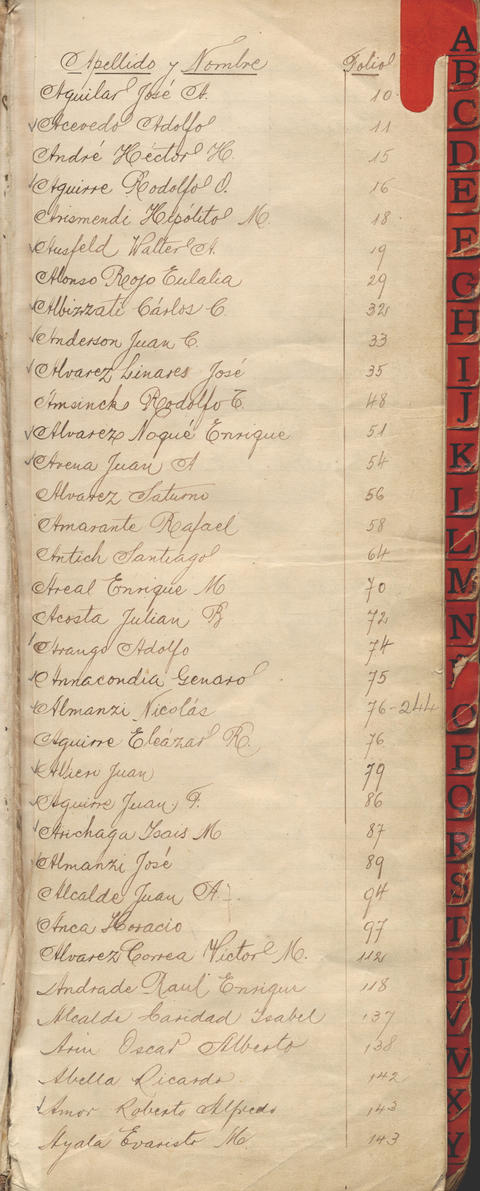 Apellido y Nombre Folio
Aguilar José A. 10
Acevedo Adolfo 11
André Héctor H. 15
Aguirre Rodolfo O. 16
Arismendi Hipólito M. 18
Ausfeld Walter A. 19
Alonso Rojo Eulalia 29
Albizzati Cárlos C. 32
Anderson Juan C. 33
Alvarez Linares José 35
Amsinck Rodolfo E. 48
Alvarez Noqué Enrique 51
Avena Juan A 54
Alvarez Saturno 56
Amarante Rafael 58
Antich Santiago 64
Areal Enrique M 70
Acosta Julian B 72
Arango Adolfo 74
Annacondia Genaro 75
Almanzi Nicolás 76-244
Aguirre Eleázar R. 76
Alieri Juan 79
Aguirre Juan F. 86
Arichaga Isais M 87
Almanzi José 89
Alcalde Juan A. 94
Anca Horacio 97
Alvarez Correa Victor M. 112
Andrade Raul Enrique 118
Alcalde Caridad Isabel 137
Oscar Alberto 138
Abella Ricardo 142
Amor Roberto Alfredo 143
Ayala Evaristo M. 143
A
B
C
D
E
F
G
H
I
J
K
L
L
M
N
O
P
Q
R
S
T
U
V
W
X
Y